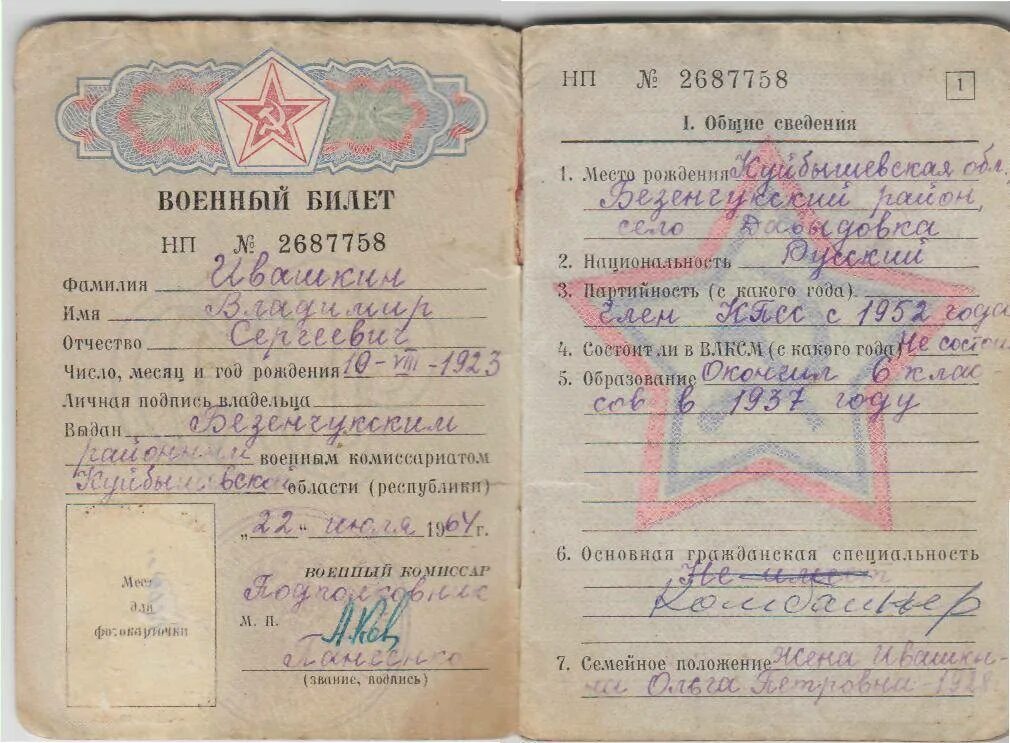 ВОЕННЫЙ БИЛЕТ
НП № 2687758
Фамилия Ивашкин
Имя Владимир
Отчество Сергеевич
Число, месяц и год рождения 10-VIII-1923
Личная подпись владельца
Выдан Безенчукским
районным военным комиссариатом
Куйбышевской области (республики)
„22" июля 1964 г.
ВОЕННЫЙ КОМИССАР
Подполковник
М. П.
(звание, подпись)
Место
для
фотокарточки
НП № 2687758
1
I. Общие сведения
1. Место рождения Куйбышевская обл,
Безенчукский район,
село Давыдовка
2. Национальность Русский
3. Партийность (с какого года)
Член КПСС с 1952 года
4. Состоит ли в ВЛКСМ (с какого года) Не состои
5. Образование Окончил 6 клас
сов в 1937 году
6. Основная гражданская специальность
Не имеет
Комбайнер
7. Семейное положение Жена Ивашки-
на Ольга Петровна-1928